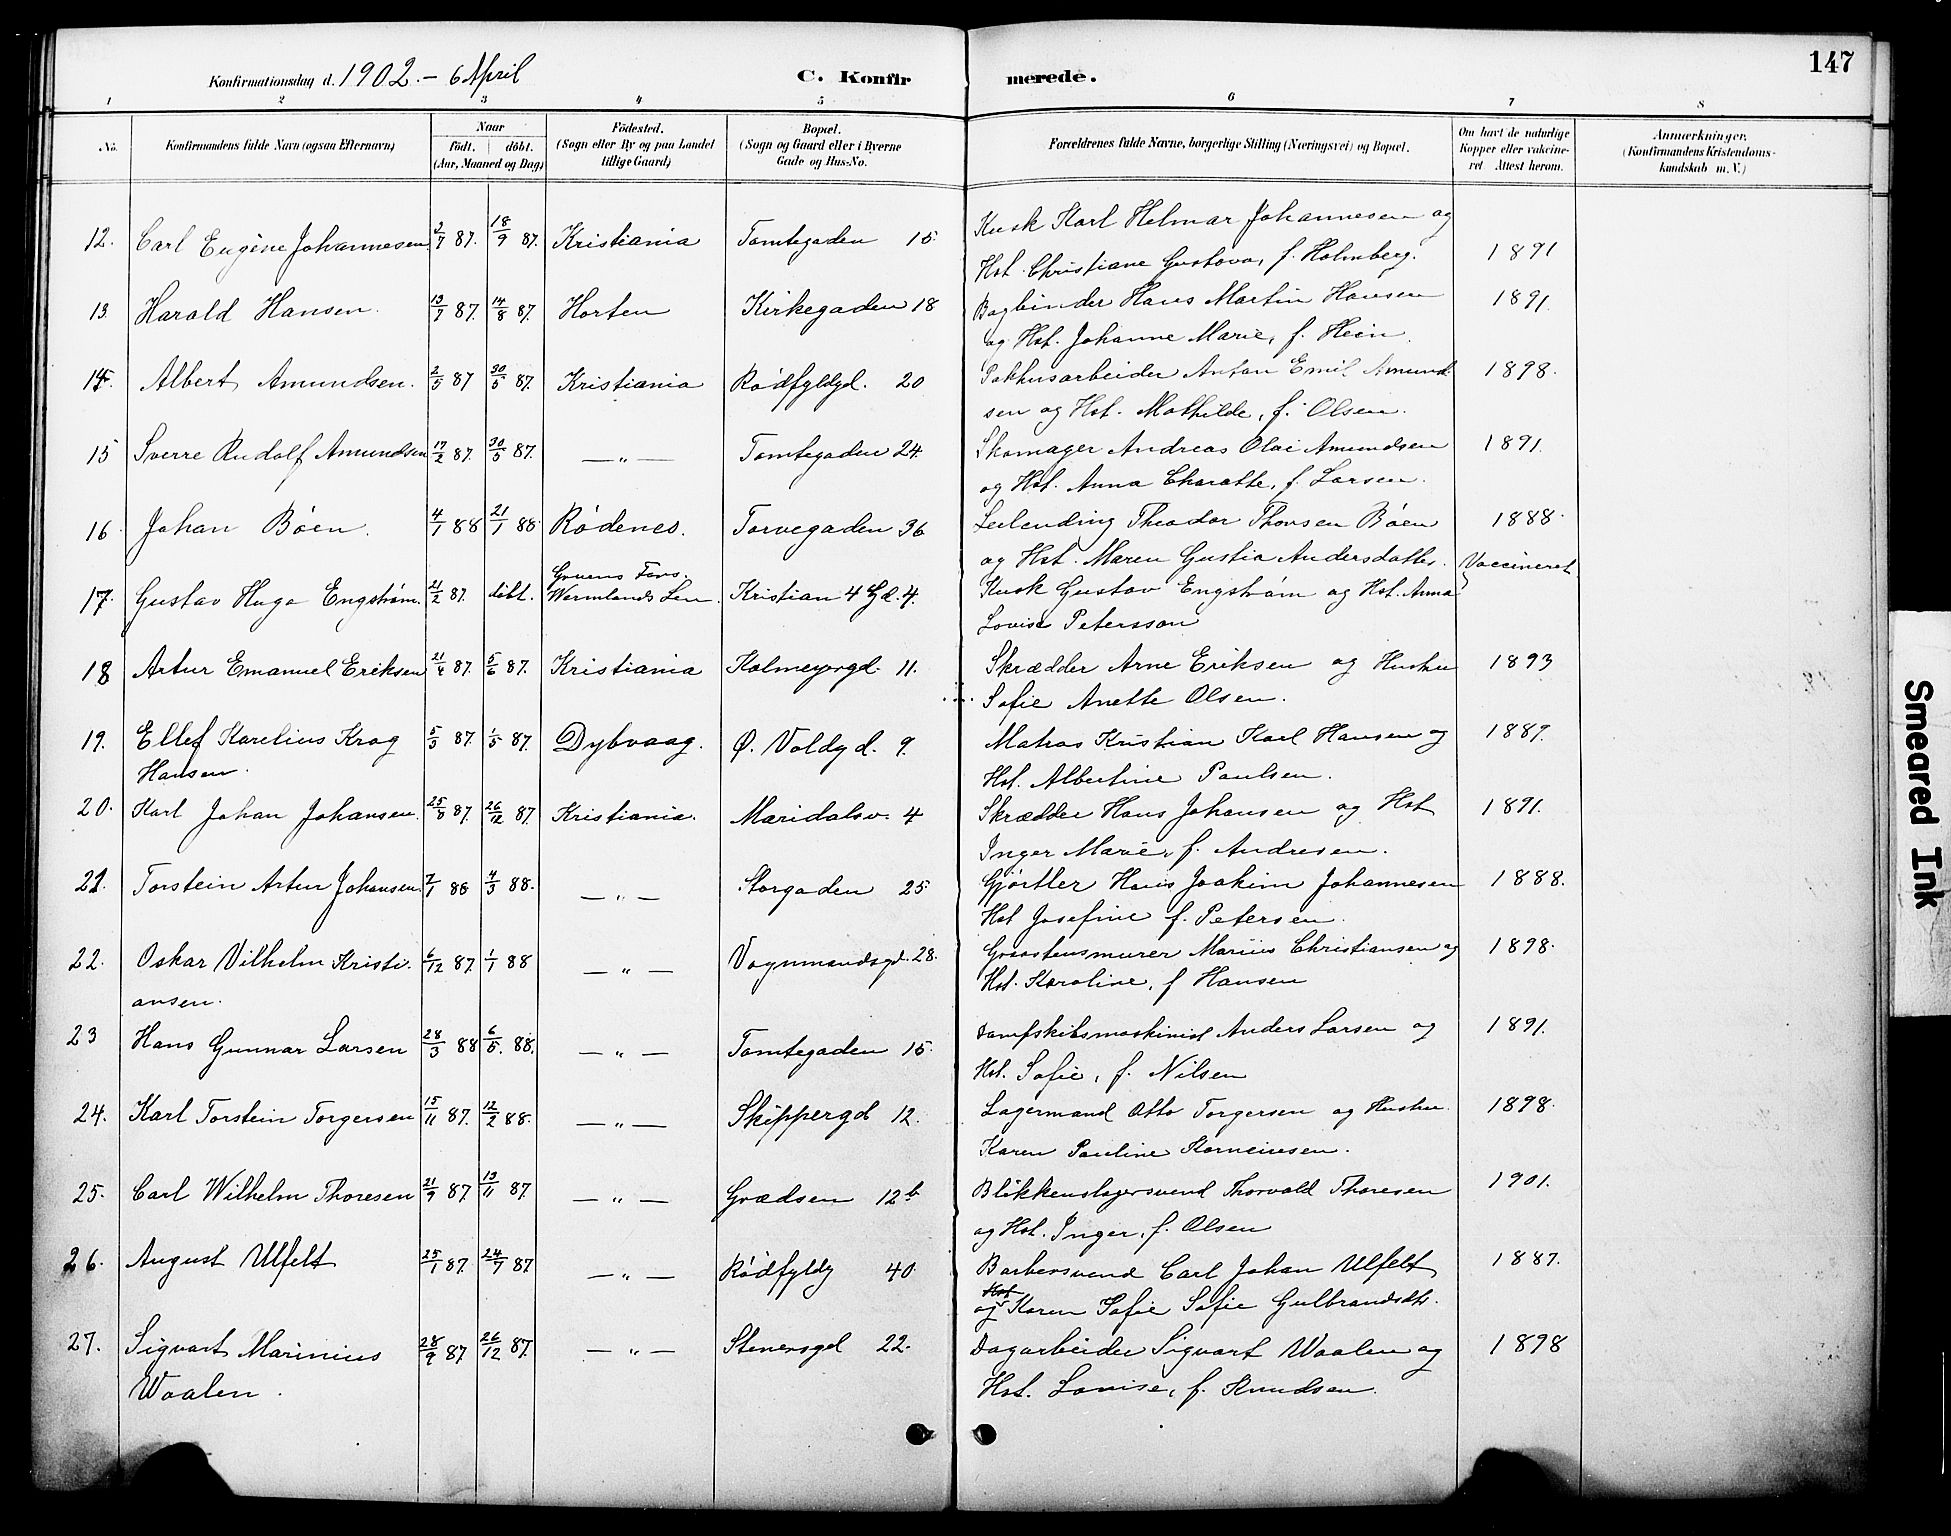 Konfirmationsdag d. 1902. - 6 April
C. Konfirmerede.
147
1 2 3 4 5 6 7 8
No. Konfirmandens fulde Navn (ogsaa Efternavn) Naar født. døbt. (Aar, Maaned og Dag) Fødested. (Sogn eller By og paa Landet tillige Gaard) Bopæl. (Sogn og Gaard eller i Byerne Gade og Hus-No. Forældrenes fulde Navne, borgerlige Stilling (Næringsvei) og Bopæl. Om havt de naturlige Kopper eller vaccineret Attest herom. Anmærkninger. (Konfirmandens Kristendomskundskab m. V.)
12. Carl Eugène Johannesen 2/7 87. 18/9 87. Kristiania Tomtegaden 15. Kusk Karl Helmar Johannesen og
Hst. Christiane Gustava, f. Holmberg. 1891
13. Harald Hansen. 13/7 87. 14/8 87. Horten Kirkegaden 18 Bogbinder Hans Martin Hansen 1891.
og Hst. Johanne Marie, f. Hein.
14. Albert Amundsen. 2/5 87 30/5 87. Kristiania Rødfyldgd. 20 Pakhusarbeider Anton Emil Amund- 1898.
sen og Hst. Mathilde, f. Olsen.
15 Sverre Rudolf Amundsen 17/2 87. 30/5 87. — " — Tomtegaden 24. Skomager Andreas Olai Amundsen 1891.
og Hst. Anna Charatte, f. Larsen.
16. Johan Bøen. 4/1 88 21/1 88. Rødenes. Torvegaden 36 Leilending Theodor Thorsen Bøen 1888.
og Hst. Maren Gustia Andersdatter. Vaccineret
17. Gustav Hugo Engstrøm. 21/2 87. døbt. Wermlands Len. Kristian 4 Gd. 4. Kusk Gustav Engstrøm og Hst. Anna
Lovisa Petersson
18 Artur Emanuel Eriksen 21/4 87. 5/6 87. Kristiania Kolmeyergd. 11. Skrædder Arne Eriksen og Hustru 1893
Sofie Anette Olsen.
19. Ellef Karelius Krog 5/3 87. 1/5 87. Dybvaag. Ø. Voldgd. 9. Matros Kristian Karl Hansen og 1887.
Hansen. Hst. Albertine Paulsen.
20. Karl Johan Johansen. 25/8 87. 26/12 87. Kristiania. Maridalsv. 4 Skrædder Hans Johansen og Hst 1891.
Inger Marie, f. Andresen.
21. Torstein Artur Johansen 7/1 88 4/3 88. — " — Storgaden 25. Gjørtler Hans Joakim Johannesen 1888.
Hst Josefine f. Petersen.
22. Oskar Vilhelm Kristi- 6/12 87. 1/1 88 — " — Vognmandsgd. 28. Graastensmurer Marius Christiansen og 1898.
ansen. Hst. Karoline, f Hansen
23 Hans Gunnar Larsen 28/3 88 6/5. 88. — " — Tomtegaden 15. Damfskibsmaskinist Anders Larsen og 1891.
Hst. Sofie, f. Nilsen
24. Karl Torstein Torgersen 15/11 87. 12/2 88. — " — Skippergd 12. Lagermand Otto Torgersen og Hustru. 1898.
Karen Pauline
25. Carl Wilhelm Thoresen 21/9 87 13/11 87 — " — Grædsen 12b Blikkenslagersvend Thorvald Thoresen 1901.
og Hst. Inger, f. Olsen
26. August Ulfelt 25/1 87. 24/7 87 — " — Rødfyldg 40. Barbersvend Carl Johan Ulfelt 1887.
Hst
og Karen Sofie Sofie Gulbrandsdtr.
27. Sigvart Marinius 28/9 87. 26/12 87. — " — Stenersgd 22. Dagarbeider Sigvart Waalen og 1898
Waalen. Hst. Lovise, f. Knudsen.
Smeared Ink